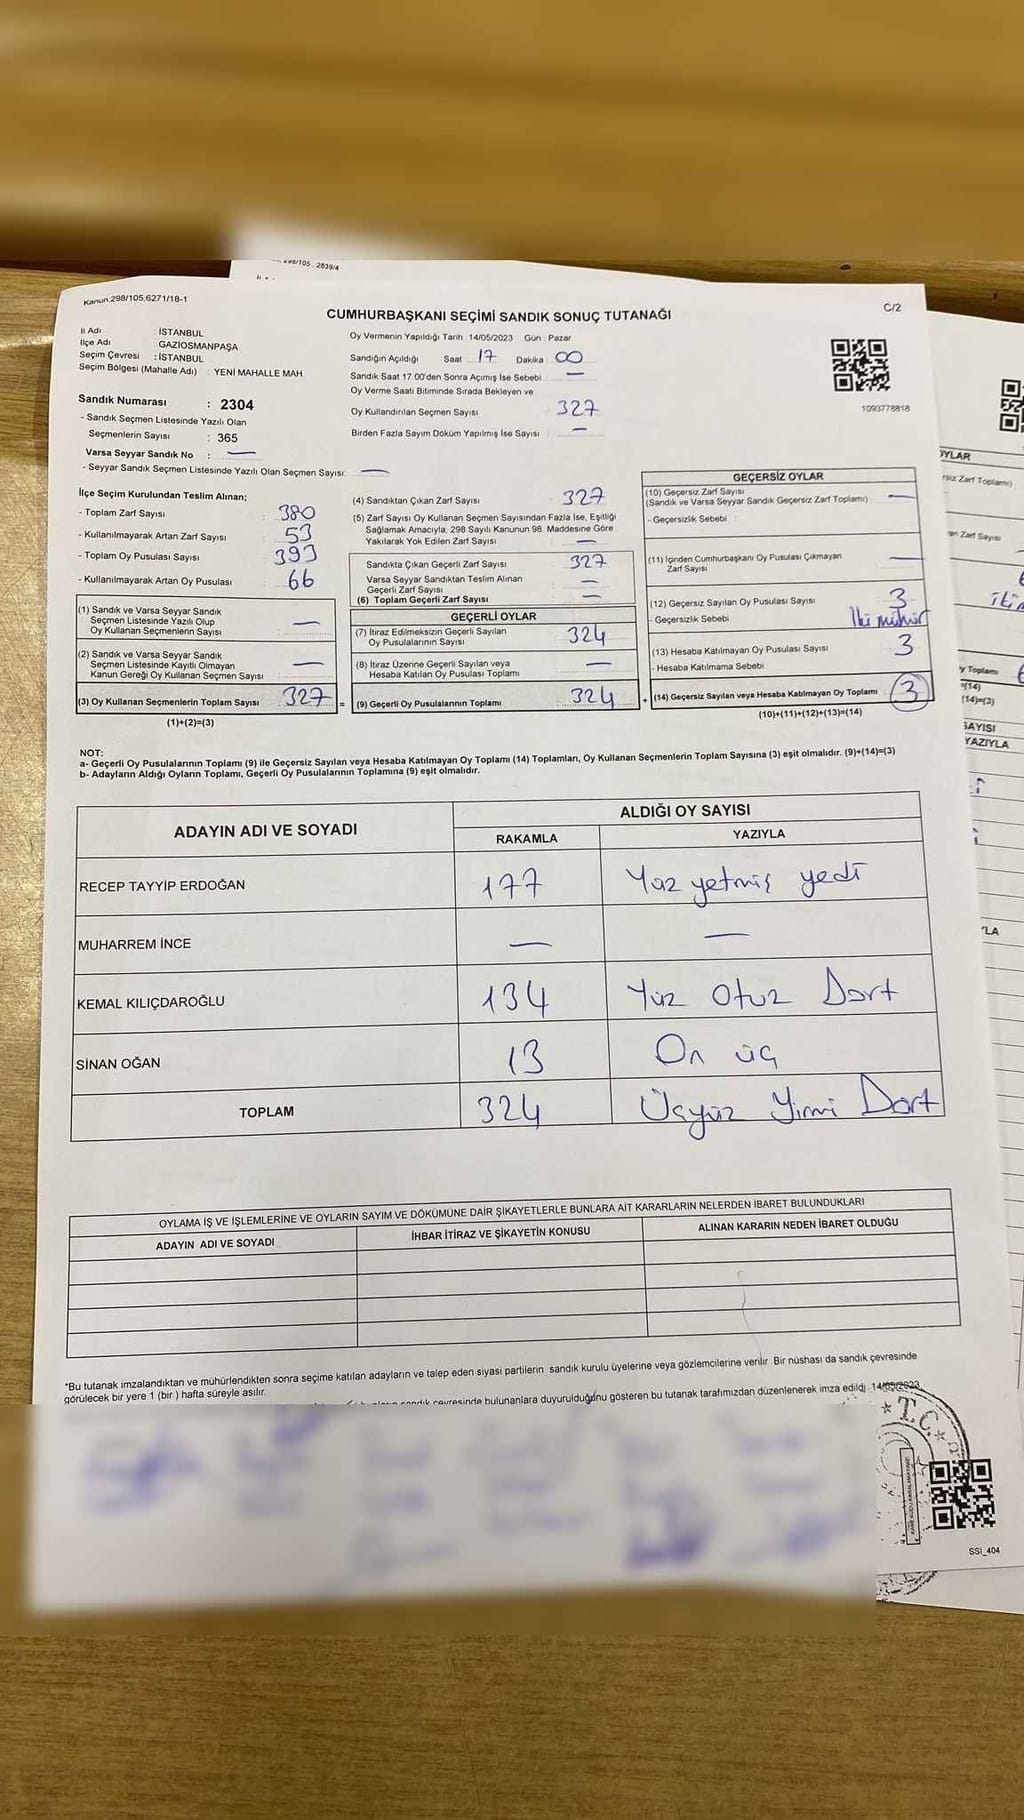 298/105 . 2839/4
Kanun.298/105,6271/18-1
C/2
CUMHURBAŞKANI SEÇİMİ SANDIK SONUÇ TUTANAĞI
İl Adı : İSTANBUL
İlçe Adı : GAZİOSMANPAŞA
Seçim Çevresi : İSTANBUL
Seçim Bölgesi (Mahalle Adı) : YENİ MAHALLE MAH.
Sandık Numarası : 2304
- Sandık Seçmen Listesinde Yazılı Olan
Seçmenlerin Sayısı : 365
Varsa Seyyar Sandık No : —
- Seyyar Sandık Seçmen Listesinde Yazılı Olan Seçmen Sayısı: —
Oy Vermenin Yapıldığı Tarih 14/05/2023 Gün : Pazar
Sandığın Açıldığı Saat 17 Dakika 00
Sandık Saat 17.00'den Sonra Açımış İse Sebebi : —
Oy Verme Saati Bitiminde Sırada Bekleyen ve
Oy Kullandırılan Seçmen Sayısı : 327
Birden Fazla Sayım Döküm Yapılmış İse Sayısı : —
1093778818
İlçe Seçim Kurulundan Teslim Alınan;
- Toplam Zarf Sayısı : 380
- Kullanılmayarak Artan Zarf Sayısı : 53
- Toplam Oy Pusulası Sayısı : 393
- Kullanılmayarak Artan Oy Pusulası : 66
(1) Sandık ve Varsa Seyyar Sandık
Seçmen Listesinde Yazılı Olup
Oy Kullanan Seçmenlerin Sayısı : —
(2) Sandık ve Varsa Seyyar Sandık
Seçmen Listesinde Kayıtlı Olmayan
Kanun Gereği Oy Kullanan Seçmen Sayısı : —
(3) Oy Kullanan Seçmenlerin Toplam Sayısı : 327 =
(1)+(2)=(3)
(4) Sandıktan Çıkan Zarf Sayısı : 327
(5) Zarf Sayısı Oy Kullanan Seçmen Sayısından Fazla İse, Eşitliği
Sağlamak Amacıyla, 298 Sayılı Kanunun 98. Maddesine Göre
Yakılarak Yok Edilen Zarf Sayısı : —
Sandıkta Çıkan Geçerli Zarf Sayısı : 327
Varsa Seyyar Sandıktan Teslim Alınan
Geçerli Zarf Sayısı : —
(6) Toplam Geçerli Zarf Sayısı : —
GEÇERLİ OYLAR
(7) İtiraz Edilmeksizin Geçerli Sayılan
Oy Pusulalarının Sayısı : 324
(8) İtiraz Üzerine Geçerli Sayılan veya
Hesaba Katılan Oy Pusulası Toplamı : —
(9) Geçerli Oy Pusulalarının Toplamı : 324 +
GEÇERSİZ OYLAR
(10) Geçersiz Zarf Sayısı
(Sandık ve Varsa Seyyar Sandık Geçersiz Zarf Toplamı) : —
- Geçersizlik Sebebi :
(11) İçinden Cumhurbaşkanı Oy Pusulası Çıkmayan
Zarf Sayısı : —
(12) Geçersiz Sayılan Oy Pusulası Sayısı : 3
- Geçersizlik Sebebi : İki mühür
(13) Hesaba Katılmayan Oy Pusulası Sayısı : 3
- Hesaba Katılmama Sebebi :
(14) Geçersiz Sayılan veya Hesaba Katılmayan Oy Toplamı : 3
(10)+(11)+(12)+(13)=(14)
NOT:
a- Geçerli Oy Pusulalarının Toplamı (9) ile Geçersiz Sayılan veya Hesaba Katılmayan Oy Toplamı (14) Toplamları, Oy Kullanan Seçmenlerin Toplam Sayısına (3) eşit olmalıdır. (9)+(14)=(3)
b- Adayların Aldığı Oyların Toplamı, Geçerli Oy Pusulalarının Toplamına (9) eşit olmalıdır.
ADAYIN ADI VE SOYADI
ALDIĞI OY SAYISI
RAKAMLA YAZIYLA
RECEP TAYYİP ERDOĞAN 177 Yüz yetmiş yedi
MUHARREM İNCE — —
KEMAL KILIÇDAROĞLU 134 Yüz Otuz Dört
SİNAN OĞAN 13 On üç
TOPLAM 324 Üçyüz Yirmi Dört
OYLAMA İŞ VE İŞLEMLERİNE VE OYLARIN SAYIM VE DÖKÜMÜNE DAİR ŞİKAYETLERLE BUNLARA AİT KARARLARIN NELERDEN İBARET BULUNDUKLARI
ADAYIN ADI VE SOYADI İHBAR İTİRAZ VE ŞİKAYETİN KONUSU ALINAN KARARIN NEDEN İBARET OLDUĞU
*Bu tutanak imzalandıktan ve mühürlendikten sonra seçime katılan adayların ve talep eden siyasi partilerin sandık kurulu üyelerine veya gözlemcilerine verilir. Bir nüshası da sandık çevresinde
görülecek bir yere 1 (bir ) hafta süreyle asılır.
sandık çevresinde bulunanlara duyurulduğunu gösteren bu tutanak tarafımızdan düzenlenerek imza edildi. 14/05/2023
T.C.
SSI_404